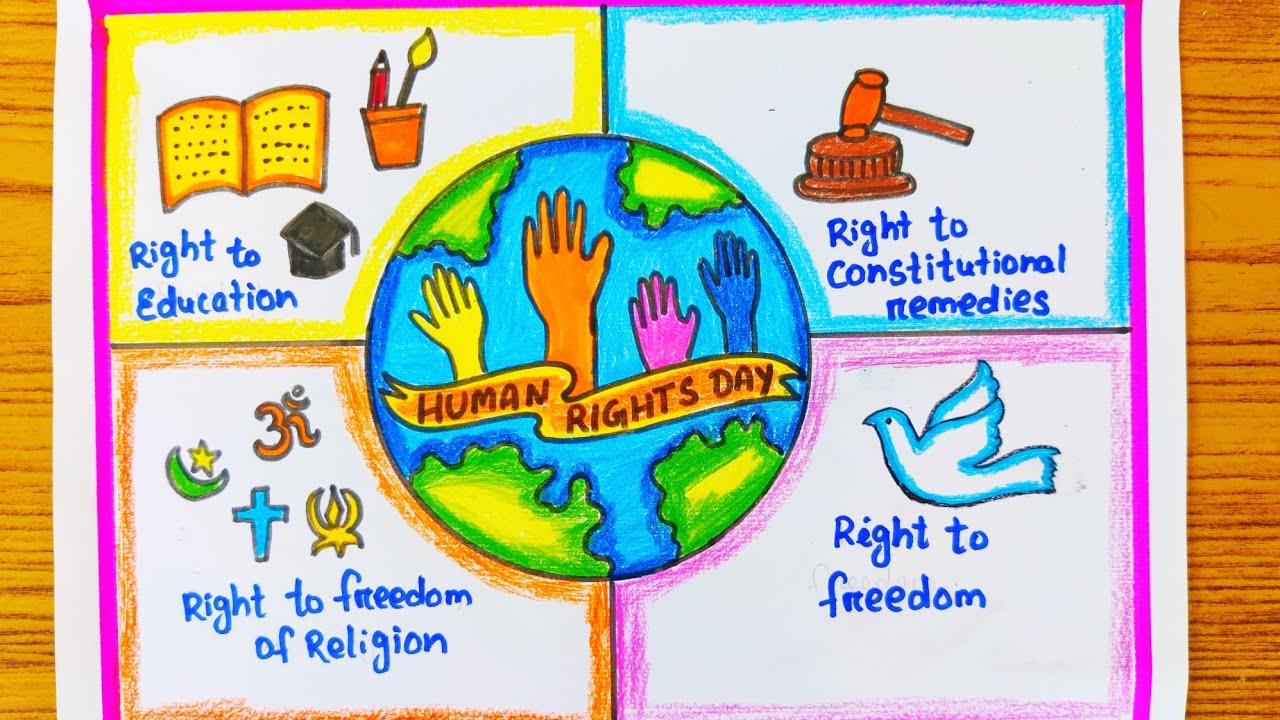 Right to
Education
Right to
Constitutional
remedies
HUMAN RIGHTS DAY
Right to freedom
of Religion
Right to
freedom